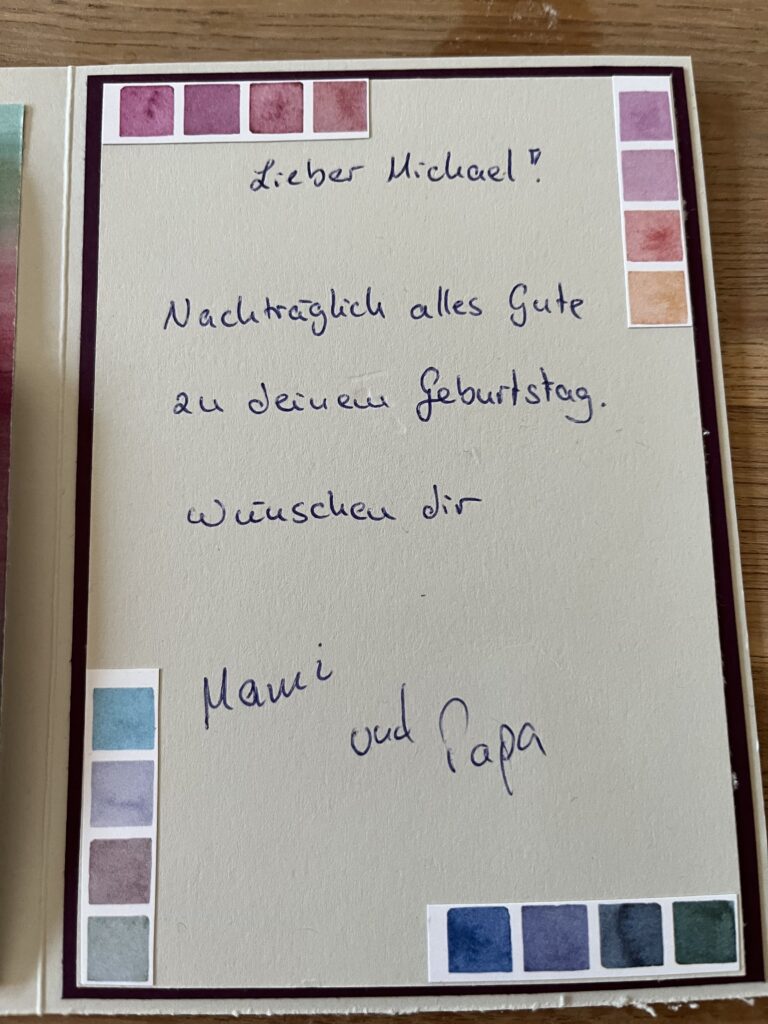 Lieber Michael!
Nachträglich alles Gute
zu deinem Geburtstag.
wünschen dir
Mami
und Papa